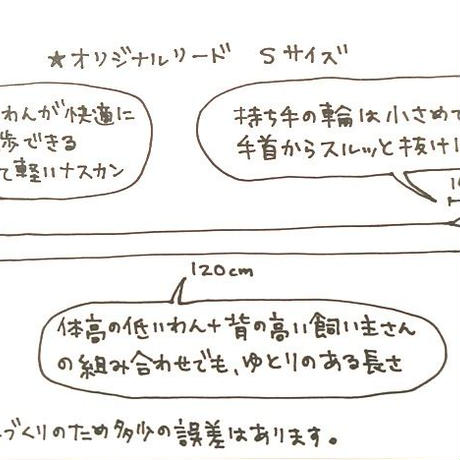 ★オリジナルリード Sサイズ
わんが快適に
歩できる
て軽いナスカン
持ち手の輪は小さめで
手首からスルッと抜けに
120cm
体高の低いわん+背の高い飼い主さん
の組み合わせでも、ゆとりのある長さ
づくりのため多少の誤差はあります。